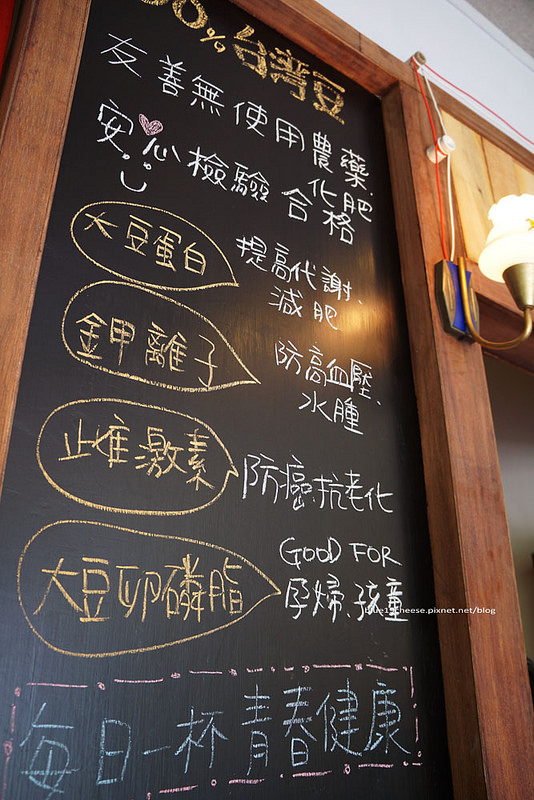 00% 台灣豆
友善無使用農藥、化肥
安心檢驗合格
大豆蛋白
提高代謝、
減肥
金甲離子
防高血壓、
水腫
止隹激素
防癌抗老化
大豆卵磷脂
GOOD FOR
孕婦、孩童
blue1ycheese.pixnet.net/blog
每日一杯青春健康